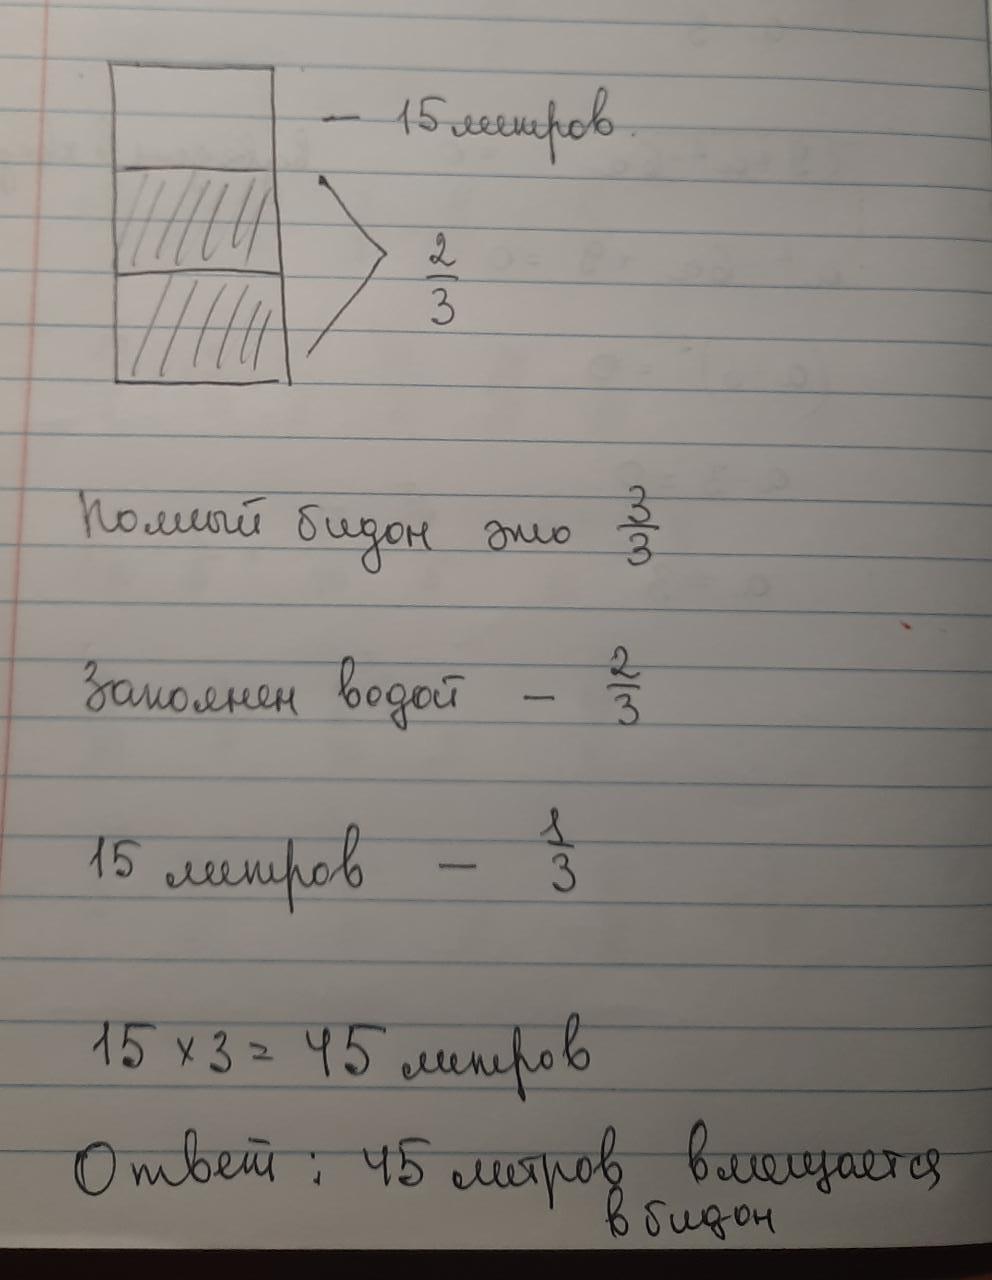 — 15 литров.
2/3
Полный бидон это 3/3
Заполнен водой — 2/3
15 литров — 1/3
15 x 3 = 45 литров
Ответ: 45 литров вмещается
в бидон